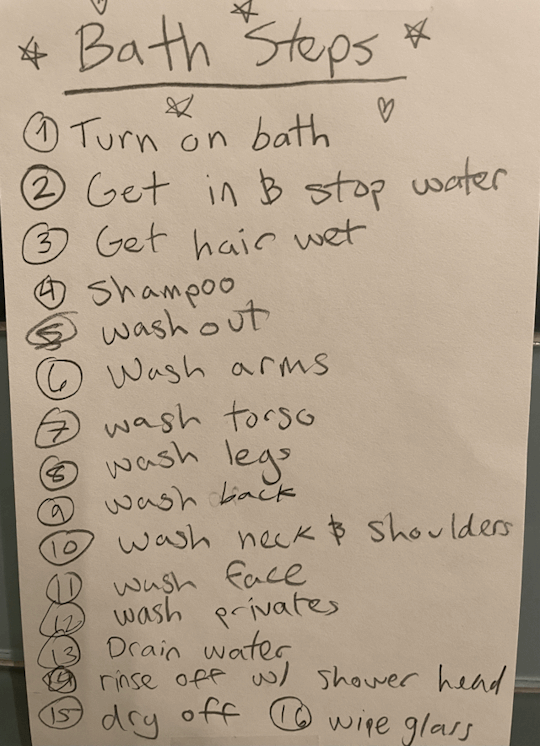 Bath Steps
① Turn on bath
② Get in & stop water
③ Get hair wet
④ Shampoo
⑤ wash out
⑥ Wash arms
⑦ wash torso
⑧ wash legs
⑨ wash back
⑩ wash neck & shoulders
⑪ wash face
⑫ wash privates
⑬ Drain water
⑭ rinse off w/ shower head
⑮ dry off ⑯ wipe glass